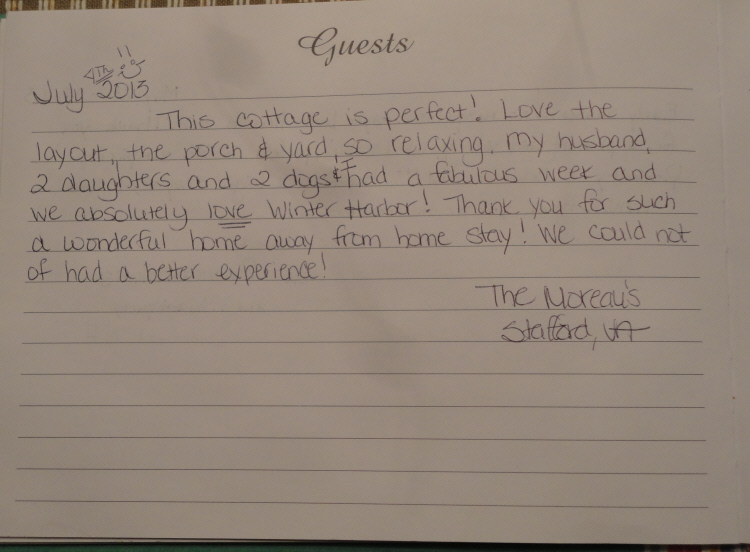 Guests
4TH
July 2013
This cottage is perfect! Love the
layout, the porch & yard, so relaxing. My husband,
2 daughters and 2 dogs & I had a fabulous week and
we absolutely love Winter Harbor! Thank you for such
a wonderful home away from home stay! We could not
of had a better experience!
The Moreau's
Stafford, VA